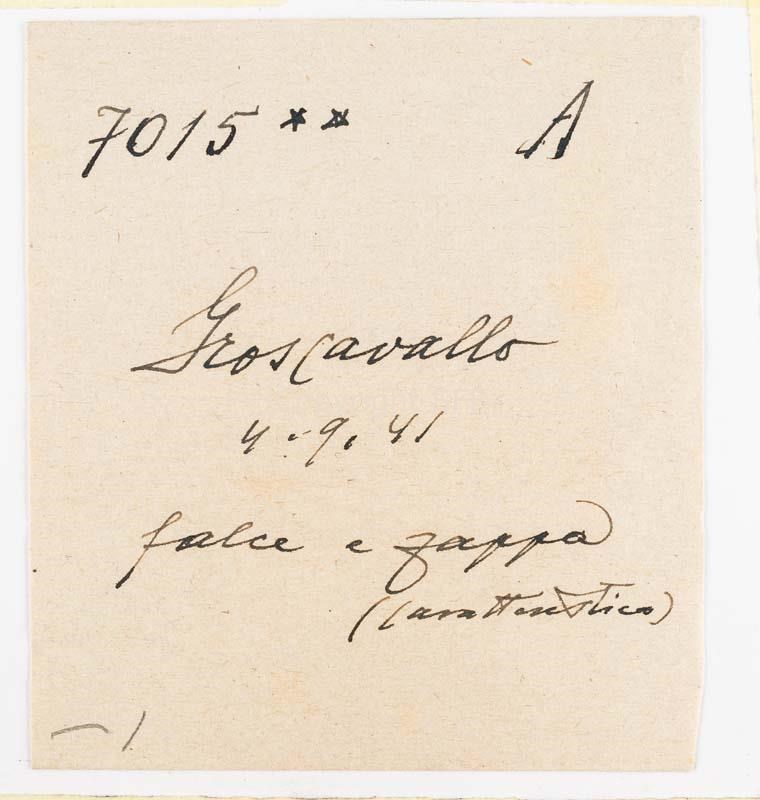 7015 ** A
Groscavallo
4.9.41
falce e zappa
(caratteristico)
— 1